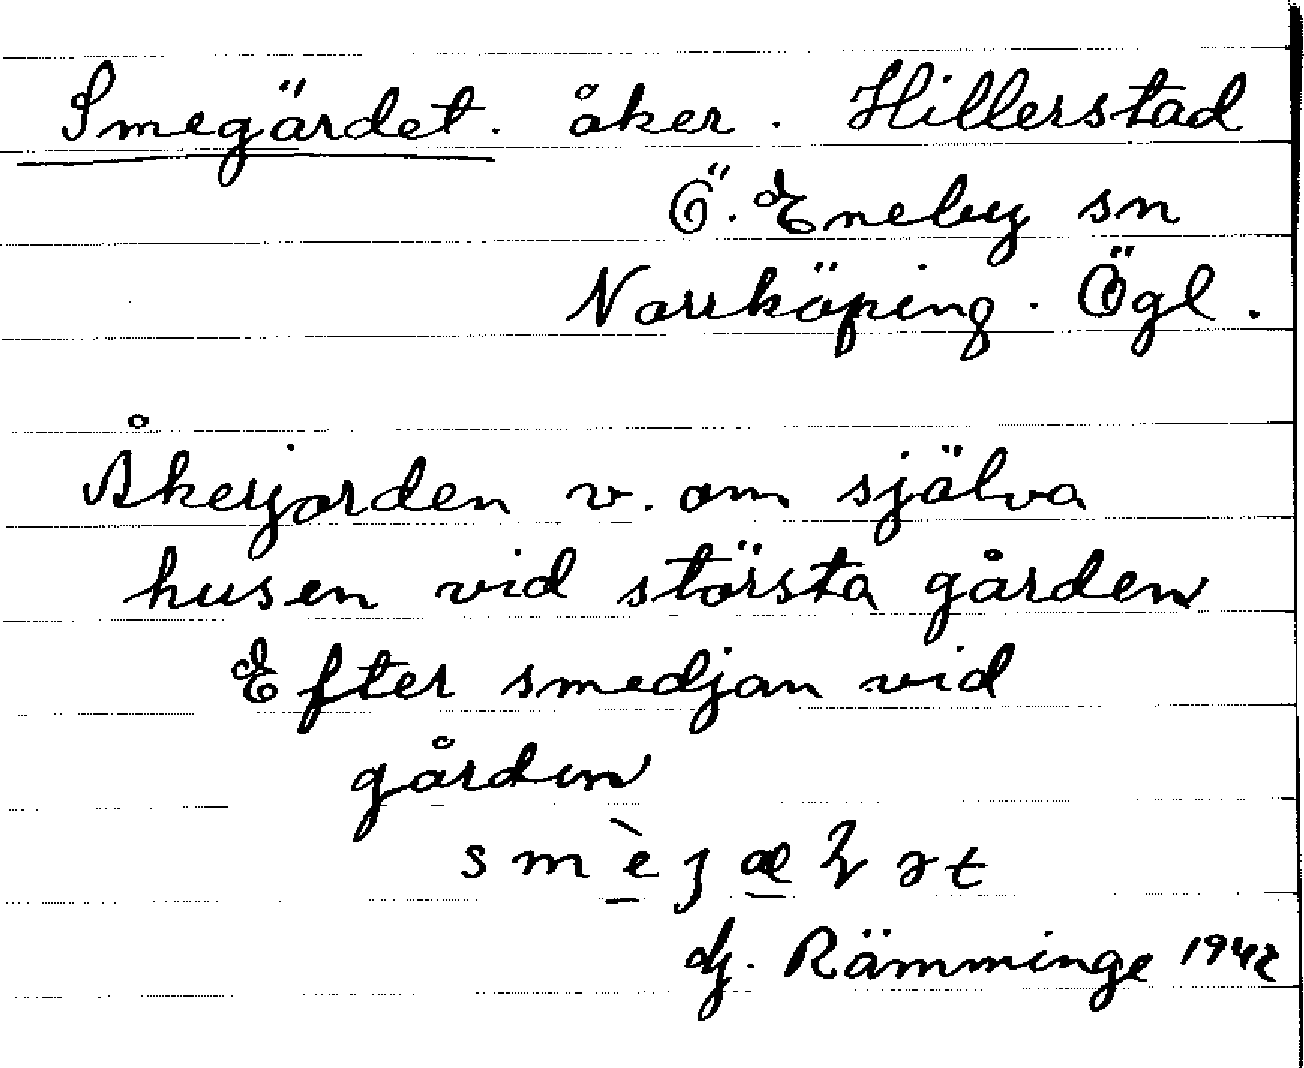 Smegärdet. åker. Hillerstad
Ö. Eneby sn
Norrköping. Ögl.
Åkerjorden v. om själva
husen vid största gården
Efter smedjan vid
gården
Rämminge 1942